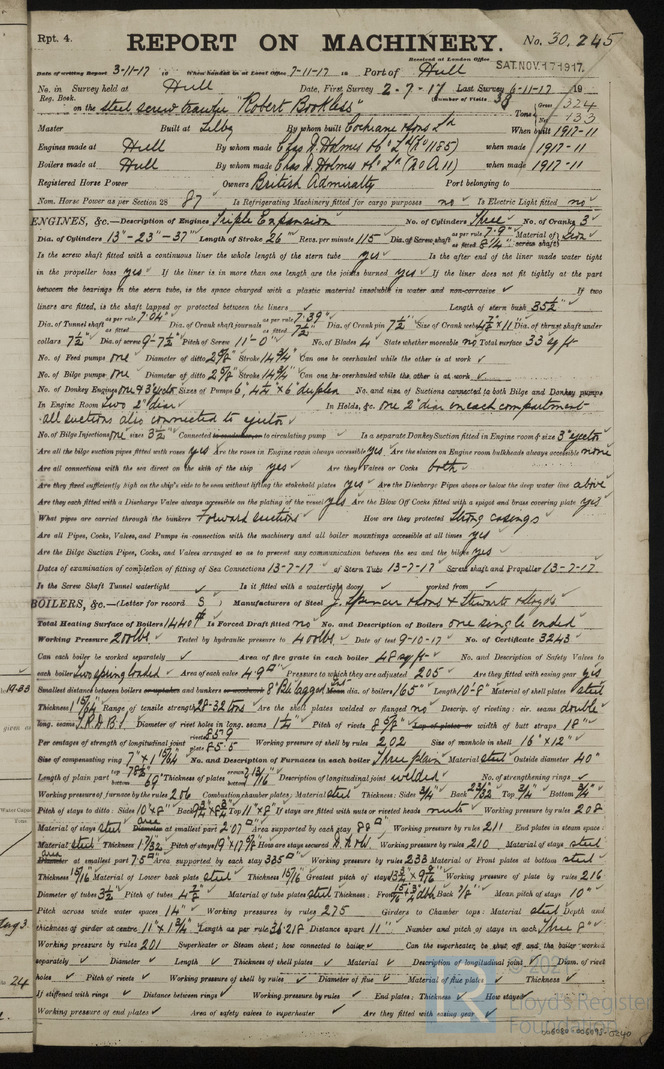 Rpt. 4.
REPORT ON MACHINERY.
No. 30,245
Received at London Office
SAT. NOV. 17 1917.
Date of writing Report 3-11-17 19 When handed in at Local Office 7-11-17 19 Port of Hull
No. in Survey held at Hull Date, First Survey 2-7-17 Last Survey 6-11-17 19
Reg. Book. (Number of Visits 38
on the steel screw trawler "Robert Bookless" Tons Gross 324 Net 133
Master Built at Selby By whom built Cochrane & Sons Ld When built 1917-11
Engines made at Hull By whom made Chas. D. Holmes & Co. Ld (No 1155) when made 1917-11
Boilers made at Hull By whom made Chas D. Holmes & Co. Ld when made 1917-11
Registered Horse Power Owners British Admiralty Port belonging to
Nom. Horse Power as per Section 28 87 Is Refrigerating Machinery fitted for cargo purposes no Is Electric Light fitted no
ENGINES, &c.—Description of Engines Triple Expansion No. of Cylinders Three No. of Cranks 3
Dia. of Cylinders 13"-23"-37" Length of Stroke 26" Revs. per minute 115 Dia. of Screw shaft as per rule 7.9" as fitted 8 1/4" Material of screw shaft Iron
Is the screw shaft fitted with a continuous liner the whole length of the stern tube yes Is the after end of the liner made water tight
in the propeller boss yes If the liner is in more than one length are the joints burned yes If the liner does not fit tightly at the part
between the bearings in the stern tube, is the space charged with a plastic material insoluble in water and non-corrosive If two
liners are fitted, is the shaft lapped or protected between the liners Length of stern bush 35 1/2"
Dia. of Tunnel shaft as per rule 7.04" as fitted Dia. of Crank shaft journals as per rule 7.39" as fitted 7 1/2" Dia. of Crank pin 7 1/2" Size of Crank webs 4 7/8" x 11" Dia. of thrust shaft under
collars 7 1/2" Dia. of screw 9'-7 1/2" Pitch of Screw 11'-0" No. of Blades 4 State whether moveable no Total surface 33 sq ft
No. of Feed pumps one Diameter of ditto 2 5/8" Stroke 14 3/4" Can one be overhauled while the other is at work
No. of Bilge pumps one Diameter of ditto 2 5/8" Stroke 14 3/4" Can one be overhauled while the other is at work
No. of Donkey Engines one & 3" ejector Sizes of Pumps 6", 4 1/2" x 6" duplex No. and size of Suctions connected to both Bilge and Donkey pumps
In Engine Room two 2" dia In Holds, &c. one 2" dia on each compartment
all suctions also connected to ejector
No. of Bilge Injections one sizes 3 1/2" Connected to condenser, or to circulating pump Is a separate Donkey Suction fitted in Engine room & size 3" ejector
Are all the bilge suction pipes fitted with roses yes Are the roses in Engine room always accessible yes Are the sluices on Engine room bulkheads always accessible none
Are all connections with the sea direct on the skin of the ship yes Are they Valves or Cocks both
Are they fixed sufficiently high on the ship's side to be seen without lifting the stokehold plates yes Are the Discharge Pipes above or below the deep water line above
Are they each fitted with a Discharge Valve always accessible on the plating of the vessel yes Are the Blow Off Cocks fitted with a spigot and brass covering plate yes
What pipes are carried through the bunkers Forward suctions How are they protected Strong casings
Are all Pipes, Cocks, Valves, and Pumps in connection with the machinery and all boiler mountings accessible at all times yes
Are the Bilge Suction Pipes, Cocks, and Valves arranged so as to prevent any communication between the sea and the bilges yes
Dates of examination of completion of fitting of Sea Connections 13-7-17 of Stern Tube 13-7-17 Screw shaft and Propeller 13-7-17
Is the Screw Shaft Tunnel watertight Is it fitted with a watertight door worked from
BOILERS, &c.—(Letter for record S ) Manufacturers of Steel J. Spencer & Sons & Stewarts & Lloyds
Total Heating Surface of Boilers 1440 ft Is Forced Draft fitted no No. and Description of Boilers one single ended
Working Pressure 200 lbs Tested by hydraulic pressure to 400 lbs Date of test 9-10-17 No. of Certificate 3243
Can each boiler be worked separately Area of fire grate in each boiler 48 sq ft No. and Description of Safety Valves to
each boiler Two spring loaded Area of each valve 4.9 Pressure to which they are adjusted 205 Are they fitted with easing gear yes
Smallest distance between boilers or uptakes and bunkers or woodwork 8" lagged Mean dia. of boilers 165" Length 10'-8" Material of shell plates steel
Thickness 1 15/64" Range of tensile strength 28-32 tons Are the shell plates welded or flanged no Descrip. of riveting: cir. seams double
long. seams T.R.D.B.S. Diameter of rivet holes in long. seams 1 1/4" Pitch of rivets 8 5/8" Lap of plates or width of butt straps 18"
Per centages of strength of longitudinal joint rivets 85.9 plate 85.5 Working pressure of shell by rules 202 Size of manhole in shell 16" x 12"
Size of compensating ring 7" x 1 15/64" No. and Description of Furnaces in each boiler Three plain Material steel Outside diameter 40"
Length of plain part top 78 1/2" bottom Thickness of plates crown bottom 13/16" Description of longitudinal joint welded No. of strengthening rings
Working pressure of furnace by the rules 206 Combustion chamber plates: Material steel Thickness: Sides 3/4" Back 23/32" Top 3/4" Bottom 3/4"
Pitch of stays to ditto: Sides 10" x 8" Back 9 3/4" x 8 3/4" Top 11" x 8" If stays are fitted with nuts or riveted heads nuts Working pressure by rules 208
Material of stays steel area Diameter at smallest part 2.07 Area supported by each stay 88 Working pressure by rules 211 End plates in steam space:
Material steel Thickness 1 9/32" Pitch of stays 19" x 17 5/8" How are stays secured Working pressure by rules 210 Material of stays steel
area Diameter at smallest part 7.5 Area supported by each stay 335 Working pressure by rules 233 Material of Front plates at bottom steel
Thickness 15/16" Material of Lower back plate steel Thickness 15/16" Greatest pitch of stays 13 3/4" x 9 7/8" Working pressure of plate by rules 216
Diameter of tubes 3 1/2" Pitch of tubes 4 7/8" Material of tube plates steel Thickness: Front 15/16" Back 7/8" Mean pitch of stays 10"
Pitch across wide water spaces 14" Working pressures by rules 275 Girders to Chamber tops: Material steel Depth and
thickness of girder at centre 11" x 1 3/4" Length as per rule 36.218 Distance apart 11" Number and pitch of stays in each Three 8"
Working pressure by rules 201 Superheater or Steam chest; how connected to boiler Can the superheater be shut off and the boiler worked
separately Diameter Length Thickness of shell plates Material Description of longitudinal joint Diam. of rivet
holes Pitch of rivets Working pressure of shell by rules Diameter of flue Material of flue plates Thickness
If stiffened with rings Distance between rings Working pressure by rules End plates: Thickness How stayed
Working pressure of end plates Area of safety valves to superheater Are they fitted with easing gear
© 202
Lloyd's Register
Foundation
006080-006093-0240